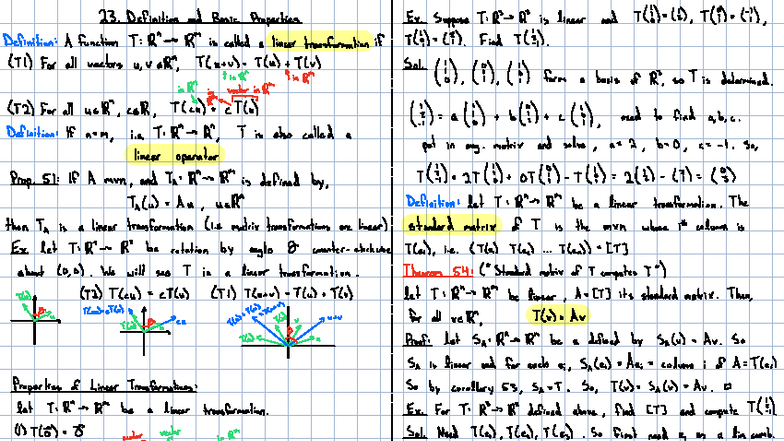 23. Definition and Basic Properties
Definition: A function T: ℝⁿ → ℝᵐ is called a linear transformation if
(T1) For all vectors u, v ∈ ℝⁿ, T(u+v) = T(u) + T(v)
in ℝⁿ in ℝᵐ
in ℝⁿ vector in ℝᵐ
(T2) For all u ∈ ℝⁿ, c ∈ ℝ, T(cu) = cT(u)
Definition: If n=m, i.e. T: ℝⁿ → ℝⁿ, T is also called a
linear operator
Prop. 51: If A mxn, and T_A: ℝⁿ → ℝᵐ is defined by,
T_A(u) = Au, u∈ℝⁿ
then T_A is a linear transformation (i.e. matrix transformations are linear)
Ex. let T: ℝ² → ℝ² be rotation by angle θ counter-clockwise
about (0,0). We will see T is a linear transformation.
(T2) T(cu) = cT(u) (T1) T(u+v) = T(u) + T(v)
Properties of Linear Transformations:
let T: ℝⁿ → ℝᵐ be a linear transformation.
(1) T(0⃗) = 0⃗
Ex. Suppose T: ℝ³ → ℝ² is linear and
Find
Sol.
form a basis of ℝ³, so T is determined.
need to find a, b, c.
put in aug. matrix and solve, a = 2, b = 0, c = -1. So,
Definition: let T: ℝⁿ → ℝᵐ be a linear transformation. The
standard matrix of T is the mxn whose iᵗʰ column is
T(eᵢ), i.e. (T(e₁) T(e₂) ... T(eₙ)) = [T]
Theorem 54: ("Standard matrix of T computes T")
let T: ℝⁿ → ℝᵐ be linear, A = [T] its standard matrix. Then,
for all v∈ℝⁿ, T(v) = Av
Proof: let S_A: ℝⁿ → ℝᵐ be a defined by S_A(v) = Av. So
S_A is linear and for each eᵢ, S_A(eᵢ) = Aeᵢ = column i of A = T(eᵢ)
So by corollary 53, S_A = T. So, T(v) = S_A(v) = Av. □
Ex. For T: ℝ³ → ℝ² defined above, find [T] and compute
Sol. Need T(e₁), T(e₂), T(e₃). So first need eᵢ as a lin comb.